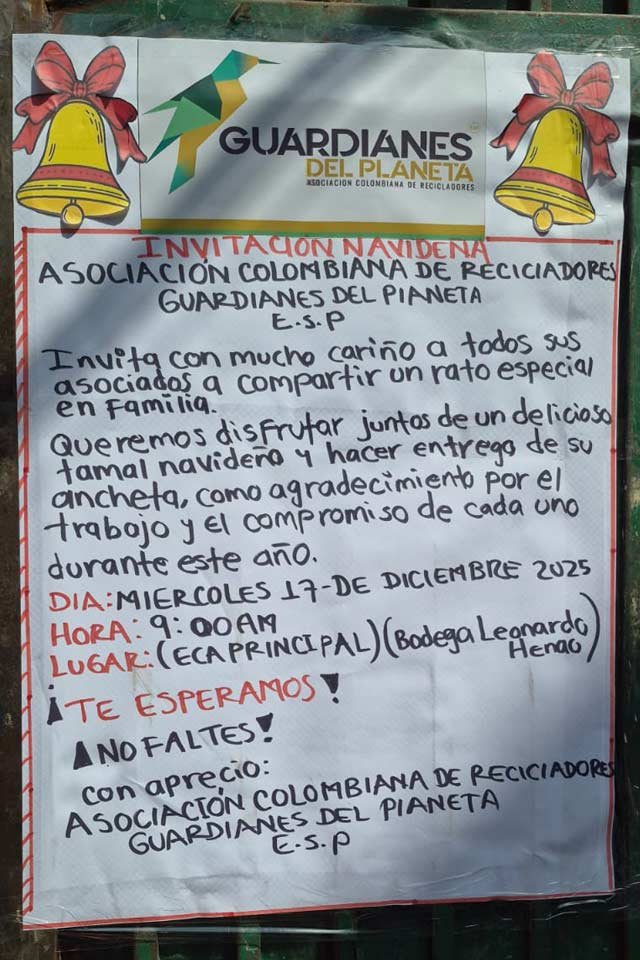 GUARDIANES
DEL PLANETA
ASOCIACIÓN COLOMBIANA DE RECICLADORES
INVITACIÓN NAVIDEÑA
ASOCIACIÓN COLOMBIANA DE RECICIADORES
GUARDIANES DEL PIANETA
E.S.P
Invita con mucho cariño a todos sus
asociados a compartir un rato especial
en Familia.
Queremos disfrutar juntos de un delicioso
tamal navideño y hacer entrega de su
ancheta, como agradecimiento por el
trabajo y El compromiso de cada uno
durante este año.
DIA: MIERCOLES 17-DE DICIEMBRE 2025
HORA: 9:00AM
LUGAR: (ECA PRINCIPAL) (Bodega Leonardo
Henao)
¡TE ESPERAMOS!
¡NO FALTES!
con aprecio:
ASOCIACIÓN COLOMBIANA DE RECICIADORES
GUARDIANES DEL PIANETA
E.S.P